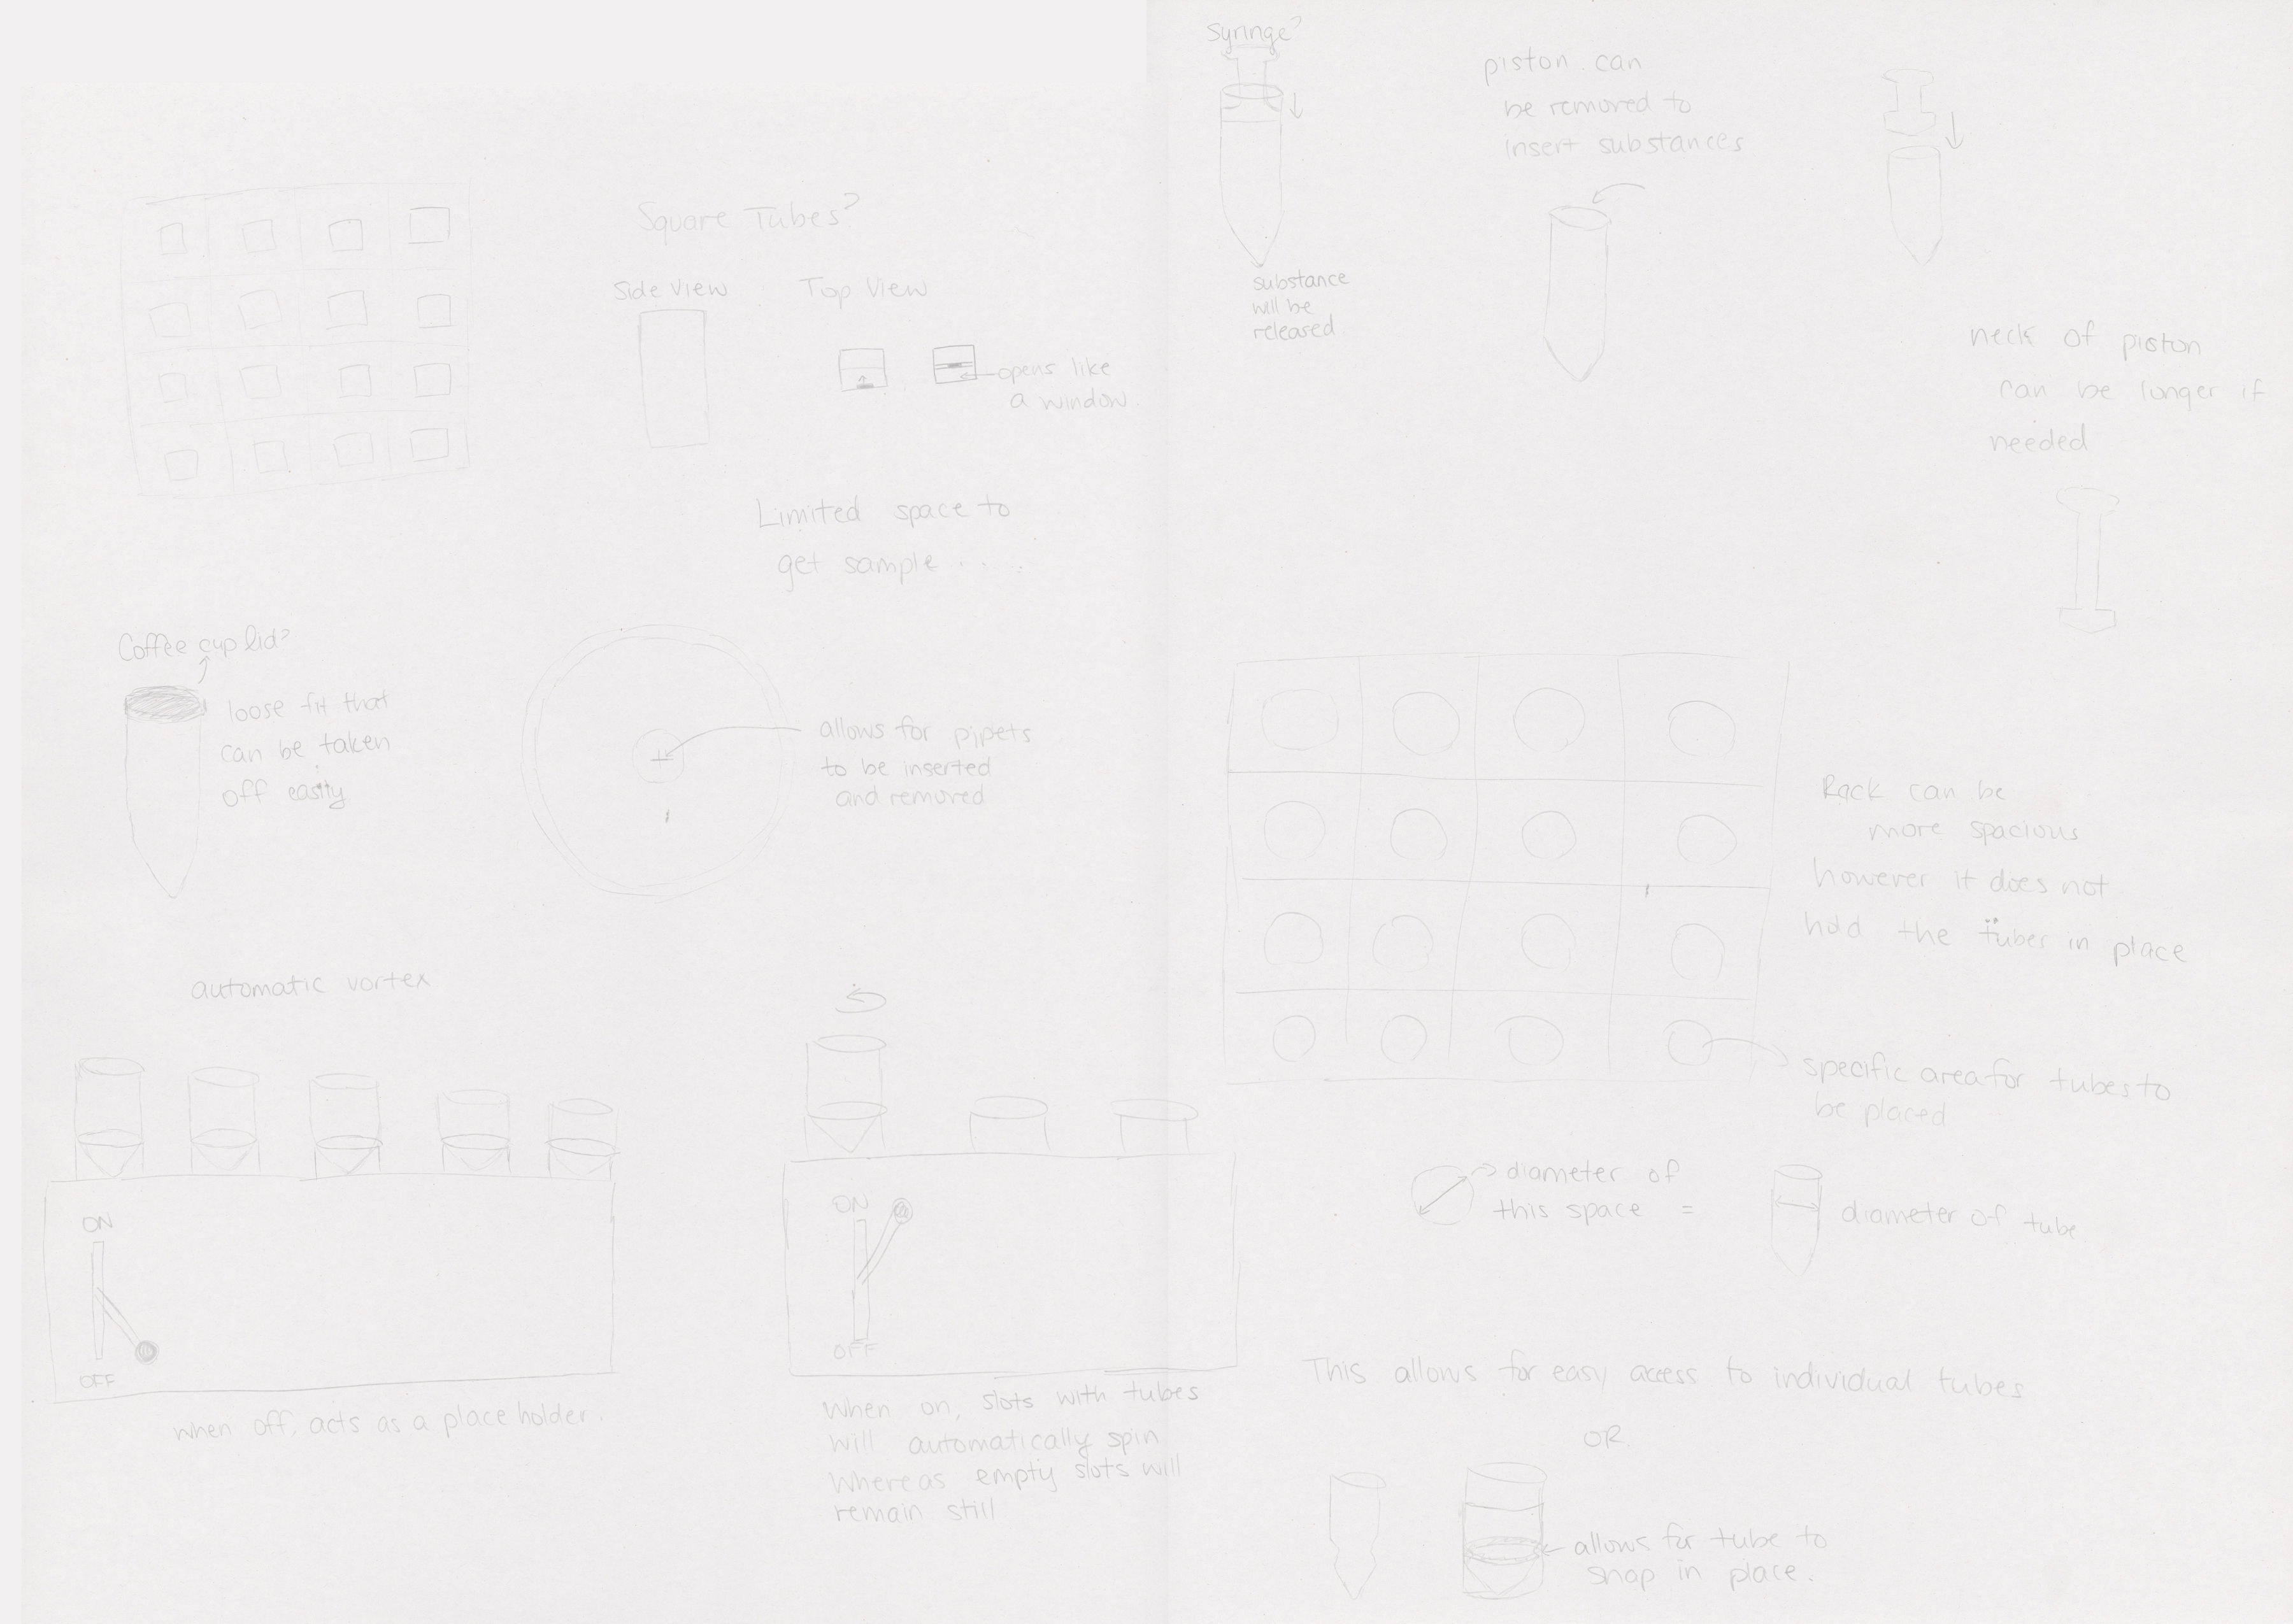 Square Tubes?
Side View
Top View
opens like
a window.
Limited space to
get sample . . . .
Coffee cup lid?
loose fit that
can be taken
off easily
allows for pipets
to be inserted
and removed
automatic vortex
ON
OFF
when off, acts as a place holder.
ON
OFF
When on, slots with tubes
will automatically spin
Whereas empty slots will
remain still
Syringe?
substance
will be
released
piston can
be removed to
insert substances
neck of piston
can be longer if
needed
Rack can be
more spacious
however it does not
hold the tubes in place
specific area for tubes to
be placed
diameter of
this space =
diameter of tube
This allows for easy access to individual tubes
OR
allows for tube to
snap in place.